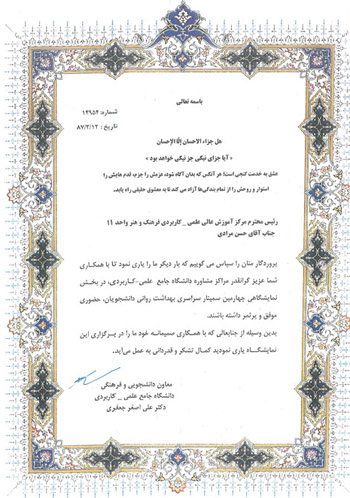 باسمه تعالی
شماره: ۱۴۹۵۴
تاریخ : ۸۷/۳/۱۲
هل جزاء الاحسان إلّا الإحسان
« آیا جزای نیکی جز نیکی خواهد بود »
عشق به خدمت گنجی است؛ هر آنکس که بدان آگاه شود، عزمش را جزب قدم هایش را
استوار و روحش را از تمام بندگی‌ها آزاد می کند تا به معشوق حقیقی راه یابد.
رئیس محترم مرکز آموزش عالی علمی _ کاربردی فرهنگ و هنر واحد ۱۱
جناب آقای حسن مرادی
پروردگار منان را سپاس می گوییم که بار دیگر ما را یاری نمود تا با همکاری
شما عزیز گرانقدر مراکز مشاوره دانشگاه جامع علمی -کاربردی، در بخش
نمایشگاهی چهارمین سمینار سراسری بهداشت روانی دانشجویان، حضوری
موفق و پرثمر داشته باشند.
بدین وسیله از جنابعالی که با همکاری صمیمانه خود ما را در برگزاری این
نمایشگاه یاری نمودید کمال تشکر و قدردانی به عمل می‌آید.
معاون دانشجویی و فرهنگی
دانشگاه جامع علمی _ کاربردی
دکتر علی اصغر جعفری